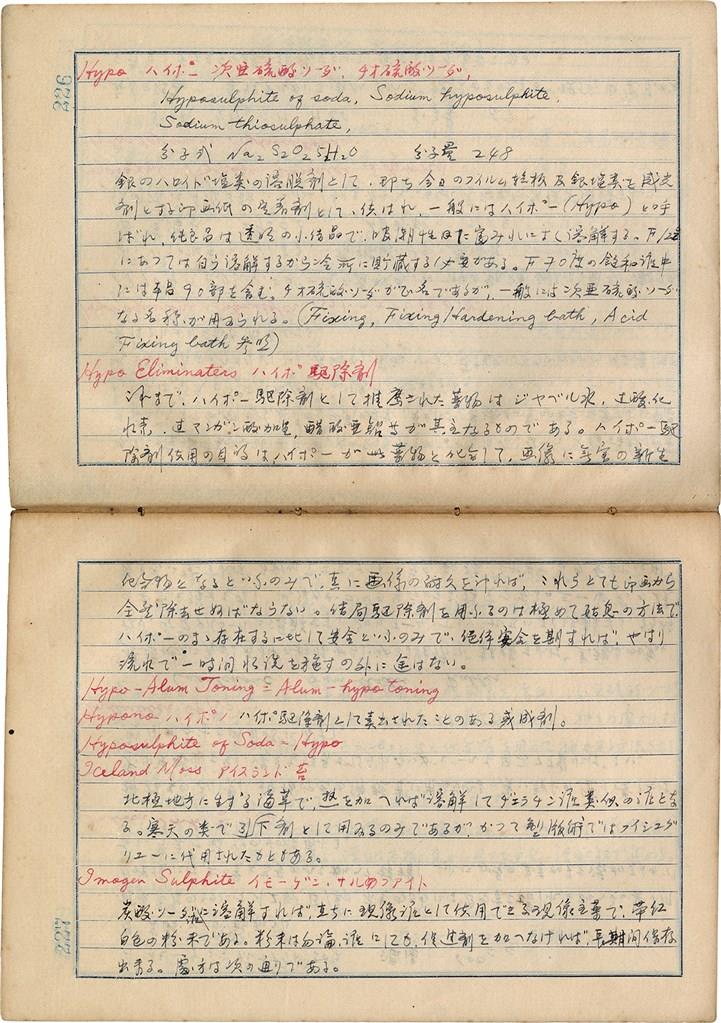 226
Hypo ハイポー 次亜硫酸ソーダ、チオ硫酸ソーダ、
Hyposulphite of soda, Sodium hyposulphite,
Sodium thiosulphate,
分子式 Na2 S2O2 5H2O 分子量 248
銀のハロイド塩类の溶脱剤として、即ち今日のフイルム乾板及銀塩类を感光
剤とする印画紙の定着剤として、供はれ、一般にはハイポー(Hypo)と呼
ばれ、純良品は透明の小結晶で、吸湿性に富み水によく溶解する。
にあつては自ら溶解するから冷所に貯蔵する必要がある。F70度の飽和液中
には 90部を含む。チオ硫酸ソーダが正名であるが、一般には次亜硫酸ソーダ
なる名称が用ゐられる。(Fixing, Fixing Hardening bath, Acid
Fixing bath 参照)
Hypo Eliminaters ハイポ 駆除剤
これまで、ハイポー駆除剤として推薦された薬物はジャベル水、过酸化
水素、过マンガン酸加里、醋酸亜鉛等が其主なるものである。ハイポー駆
除剤使用の目的はハイポーが此薬物と化合して、画像に無害の新生
化合物となるといふのみで、真に画像の耐久を計れば、これらとても印画から
全然除去せねばならない。結局駆除剤を用ふるのは極めて姑息の方法で、
ハイポーのまゝ存在するに比して安全といふのみで、絶体安全を期すれば、やはり
流水で一時間水洗を施すの外に途はない。
Hypo-Alum Toning = Alum-hypo toning
Hypono ハイポノ ハイポ駆除剤として売出されたことのある 成剤。
Hyposulphite of Soda = Hypo
Iceland Moss アイスランド苔
北極地方に生ずる海草で、熱を加へれば溶解してゼラチン液类似の液とな
る。寒天の类で引下剤として用ゐるのみであるが、かつて製版術ではアイシングラ
リューに代用されたこともある。
Imogen Sulphite イモーゲン・サルファイト
炭酸ソーダに溶解すれば直ちに現像液として使用できる現像主薬で、帯紅
白色の粉末である。粉末は勿論、液にしても、促進剤を加へなければ、長期間保存
出来る。處方は次の通りである。
227